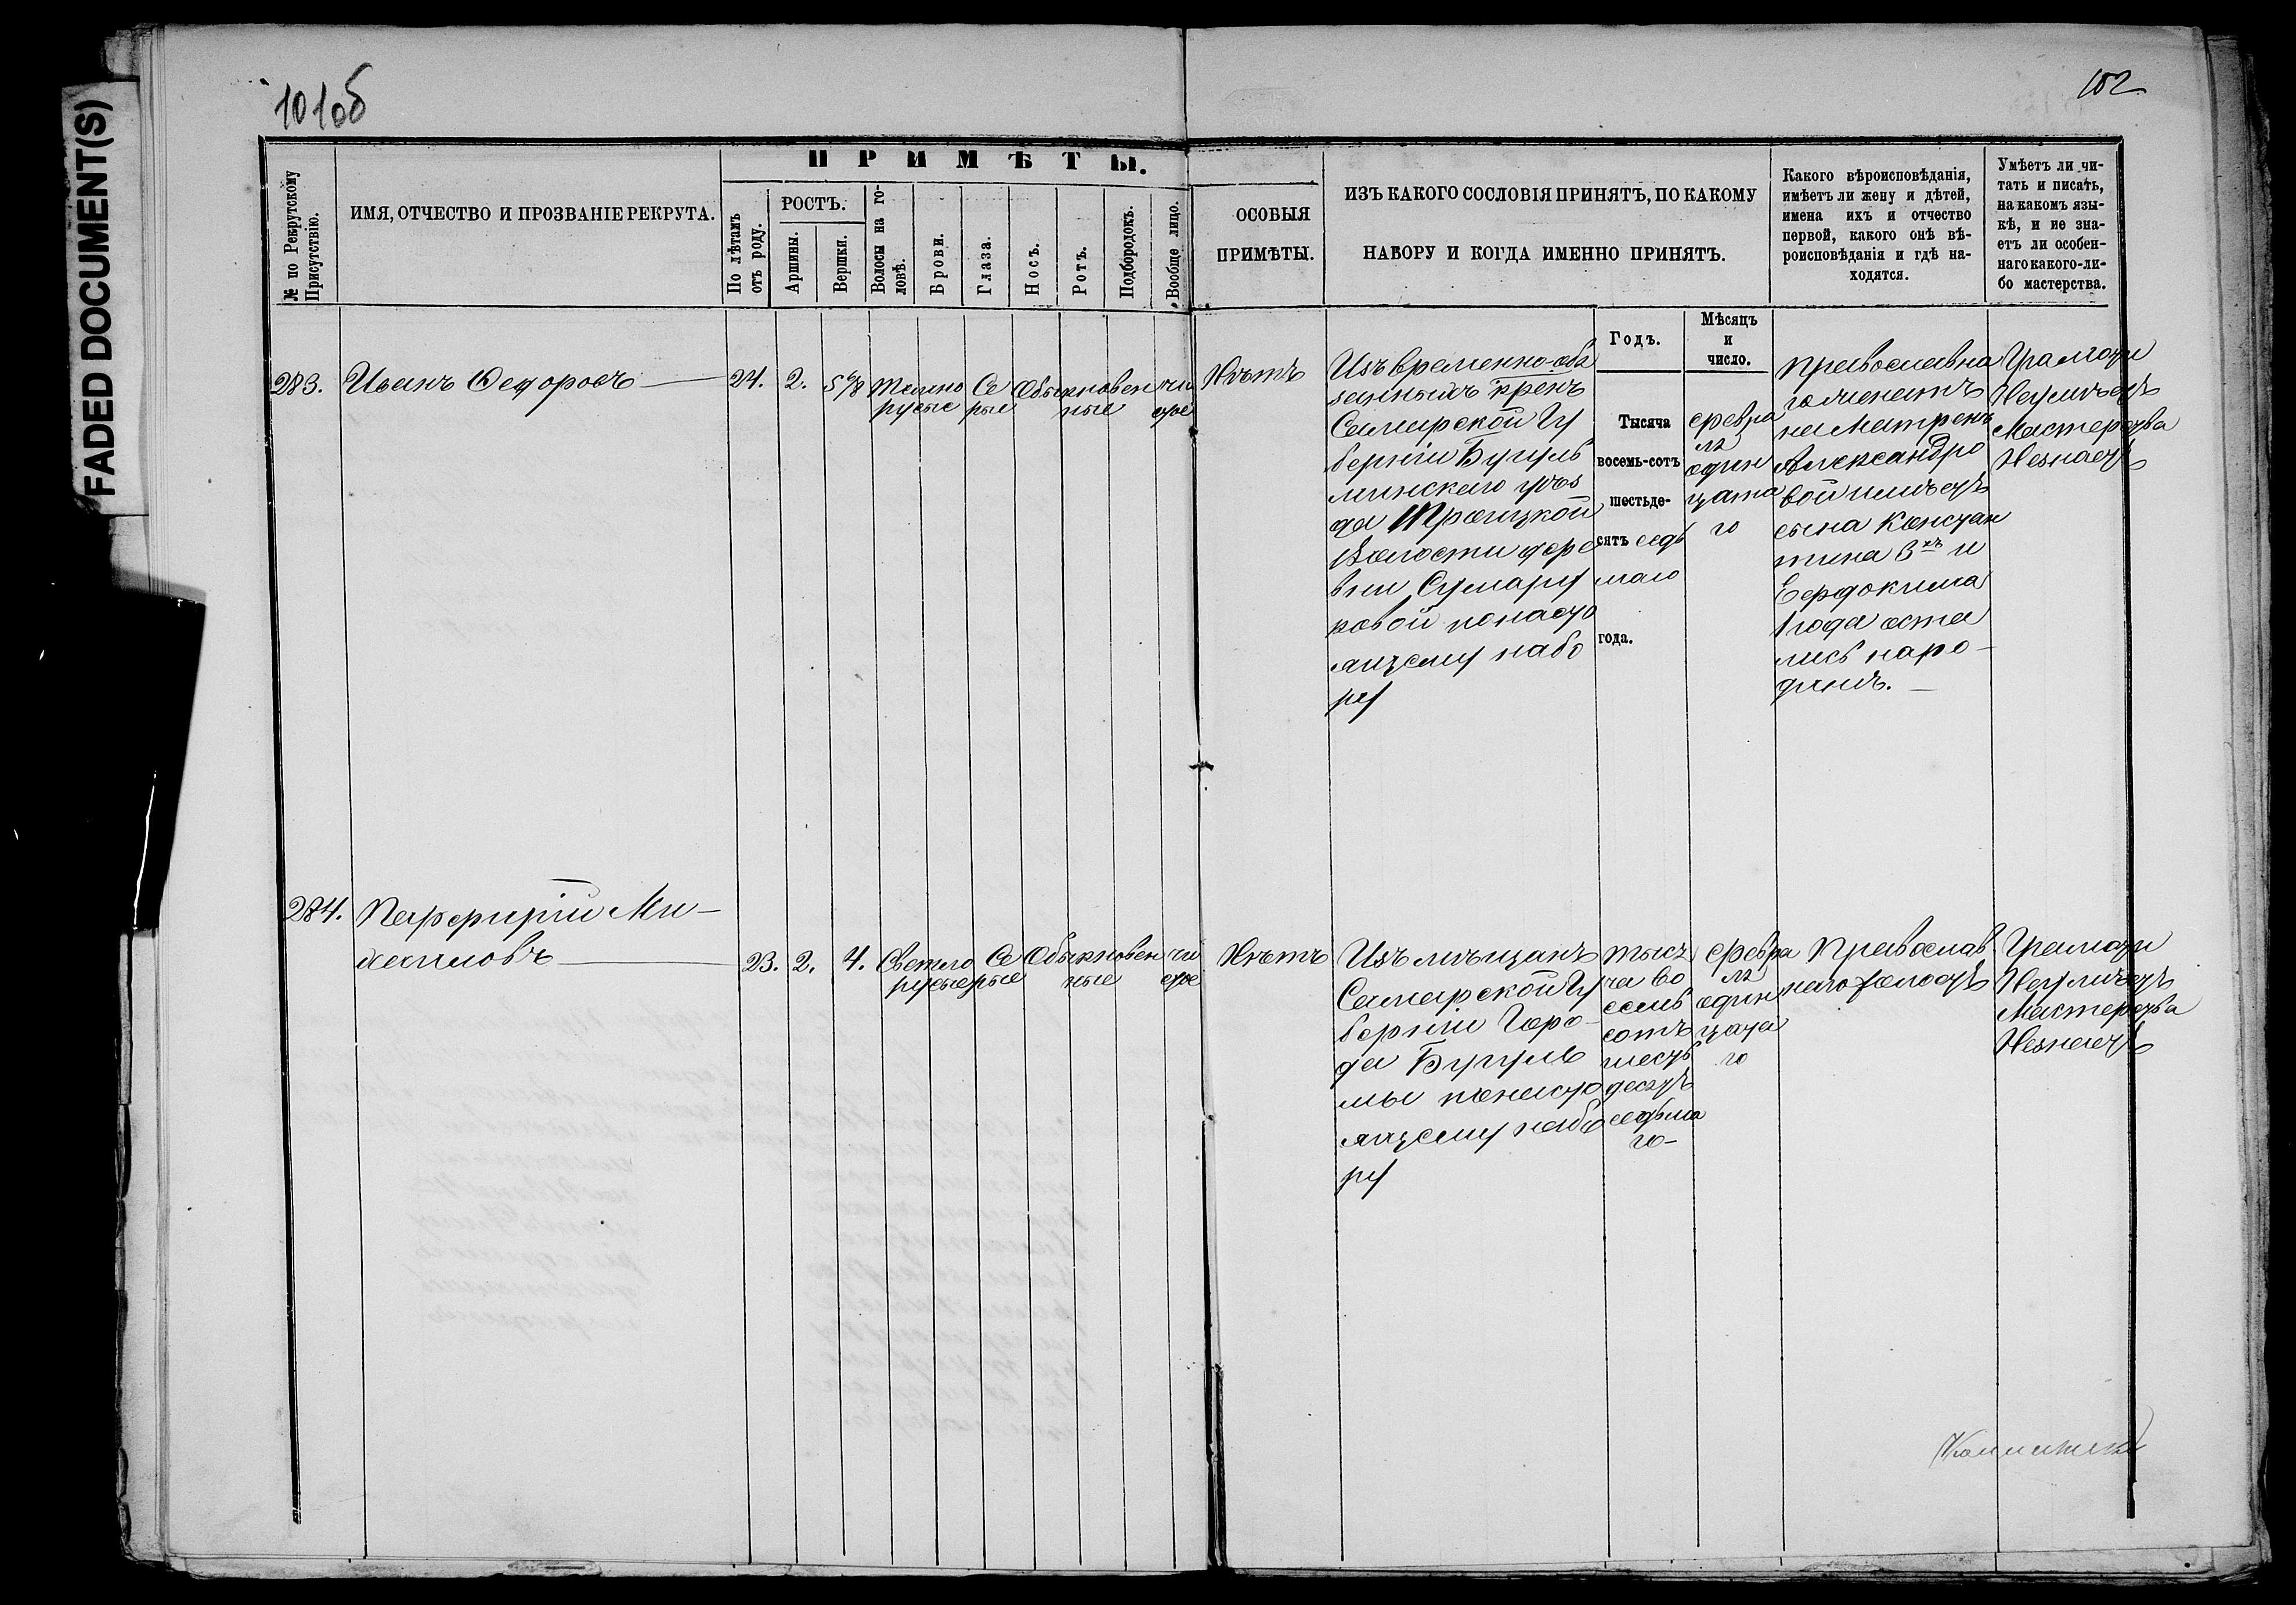 101об
102
FADED DOCUMENT(S)
ПРИМѢТЫ.
№ по Рекрутскому
Присутствію.
ИМЯ, ОТЧЕСТВО И ПРОЗВАНІЕ РЕКРУТА.
По лѣтамъ
отъ роду.
РОСТЪ.
Аршины.
Вершки.
Волосы на го-
ловѣ.
Брови.
Глаза.
Носъ.
Ротъ.
Подбородокъ.
Вообще лицо.
ОСОБЫЯ
ПРИМѢТЫ.
ИЗЪ КАКОГО СОСЛОВІЯ ПРИНЯТЪ, ПО КАКОМУ
НАБОРУ И КОГДА ИМЕННО ПРИНЯТЪ.
Какого вѣроисповѣданія,
имѣетъ ли жену и дѣтей,
имена ихъ и отчество
первой, какого онѣ вѣ-
роисповѣданія и гдѣ на-
ходятся.
Умѣетъ ли чи-
тать и писать,
на какомъ язы-
кѣ, и не зна-
етъ ли особен-
наго какого-ли-
бо мастерства.
283.
Иванъ Ѳедоровъ
24.
2.
5 6/8
Темно
русые
Се
рые
Обыкновен
ные
чи
стое
Нѣтъ
Изъ временно-обя
занныхъ крень
Самарской Гу
берніи Бугуль
минскаго уѣз
да Троицкой
Волости дере
вни Сумару
ковой по насто
ящему набо
ру
Годъ.
Тысяча
восемь-сотъ
шестьде-
сятъ седь
маго
года.
Мѣсяцъ
и
число.
февра
ля
один
цата
го
православна
го женатъ
на Матрене
Александро
вой имѣетъ
сына Констан
тина 3хъ и
Евдокима
1 года оста
лись на ро-
динѣ.
Грамоти
Неумѣетъ
Мастерства
Незнаетъ
284.
Парфирій Ми-
хаиловъ
23.
2.
4.
Светло
русые
Се
рые
Обыкновен
ные
чи
стое
Нѣтъ
Изъ мѣщанъ
Самарской Гу
берніи Горо-
да Бугуль
мы по насто
ящему набо
ру
тыся
ча во
семь
сотъ
шесть
десятъ
седьма
го-
февра
ля
один
цата
го
Православ
наго холостъ
Грамоти
Неумѣетъ
Мастерства
Незнаетъ